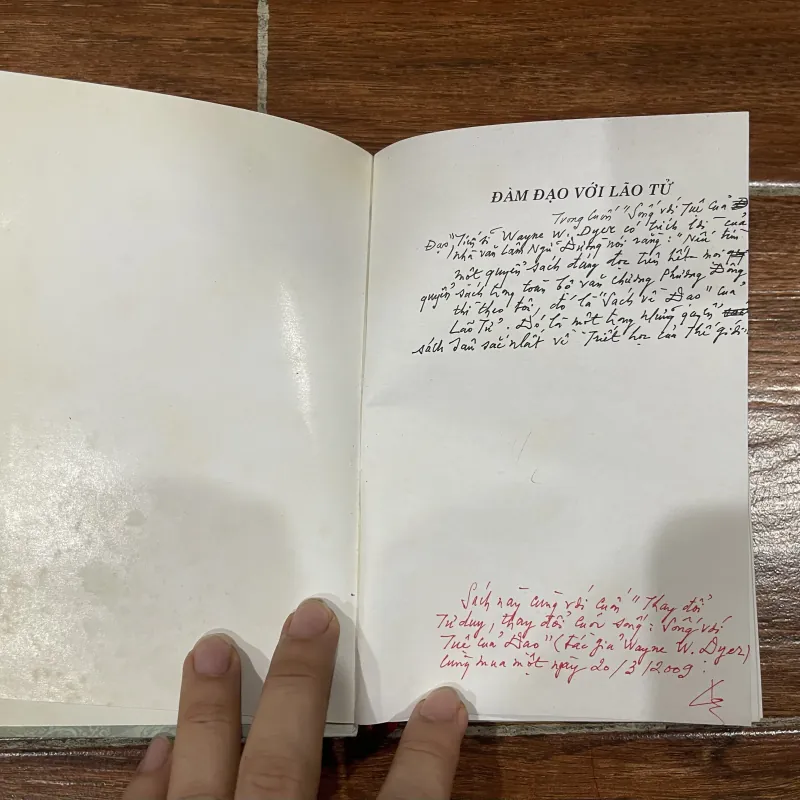 ĐÀM ĐẠO VỚI LÃO TỬ
Trong cuốn "Sống với Tuệ của
Đạo", Tiến sĩ Wayne W. Dyer có trích lời của
nhà văn Lâm Ngữ Đường nói rằng: "Nếu tìm
một quyển sách đáng đọc trên hết mọi
quyển sách trong toàn bộ văn chương Phương Đông
thì theo tôi, đó là "Sách về Đạo" của
Lão Tử". Đó là một trong những quyển
sách sâu sắc nhất về Triết học của Thế giới.
Sách này cùng với cuốn "Thay đổi
Tư duy, thay đổi cuộc sống: Sống với
Tuệ của Đạo" (tác giả Wayne W. Dyer)
cùng mua một ngày 20/3/2009.